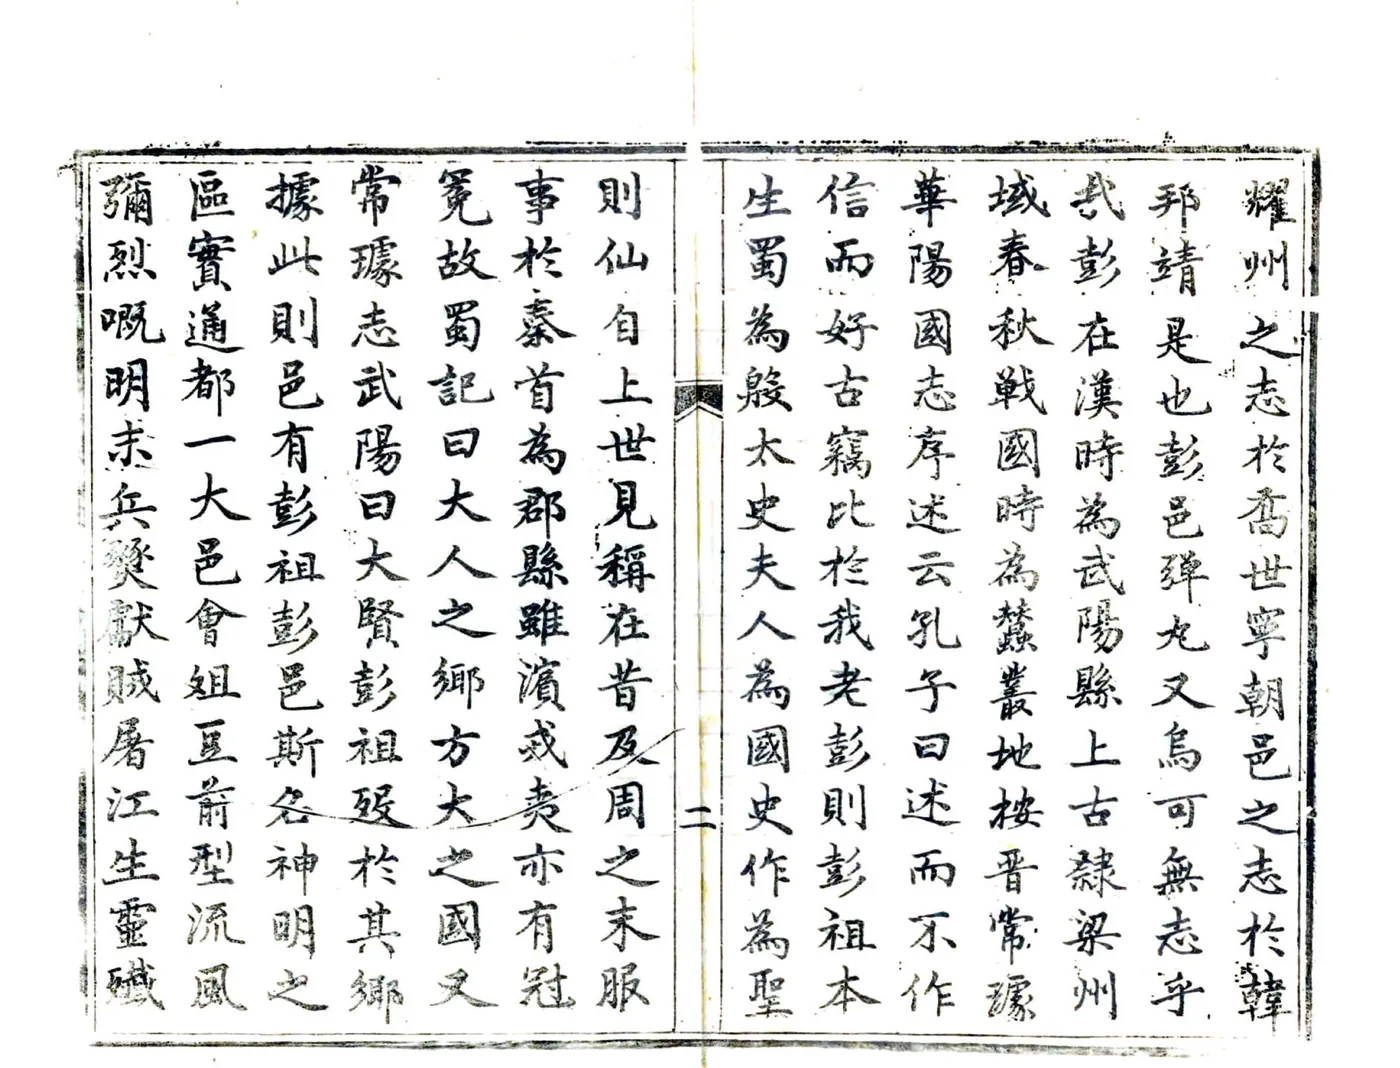 耀州之志於喬世寧朝邑之志於韓
邦靖是也彭邑弹丸又烏可無志乎
㢤彭在漢時為武陽縣上古隸梁州
域春秋戰國時為蠶叢地按晋常璩
華陽國志序述云孔子曰述而不作
信而好古竊比於我老彭則彭祖本
生蜀為殷太史夫人為國史作為聖
則仙自上世見稱在昔及周之末服
事於秦首為郡縣雖濱戎夷亦有冠
冕故蜀記曰大人之鄉方大之國又
常璩志武陽曰大賢彭祖歿於其鄉
據此則邑有彭祖彭邑斯名神明之
區實通都一大邑會俎豆前型流風
彌烈嘅明末兵燹獻賊屠江生靈殲
二